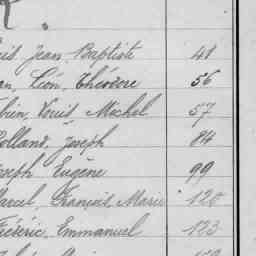 R.
Jean Baptiste 41
Léon, Théodore 56
Louis, Michel 57
Joseph 84
Joseph Eugène 99
Marcel, François, Marie 120
Frédéric, Emmanuel 123